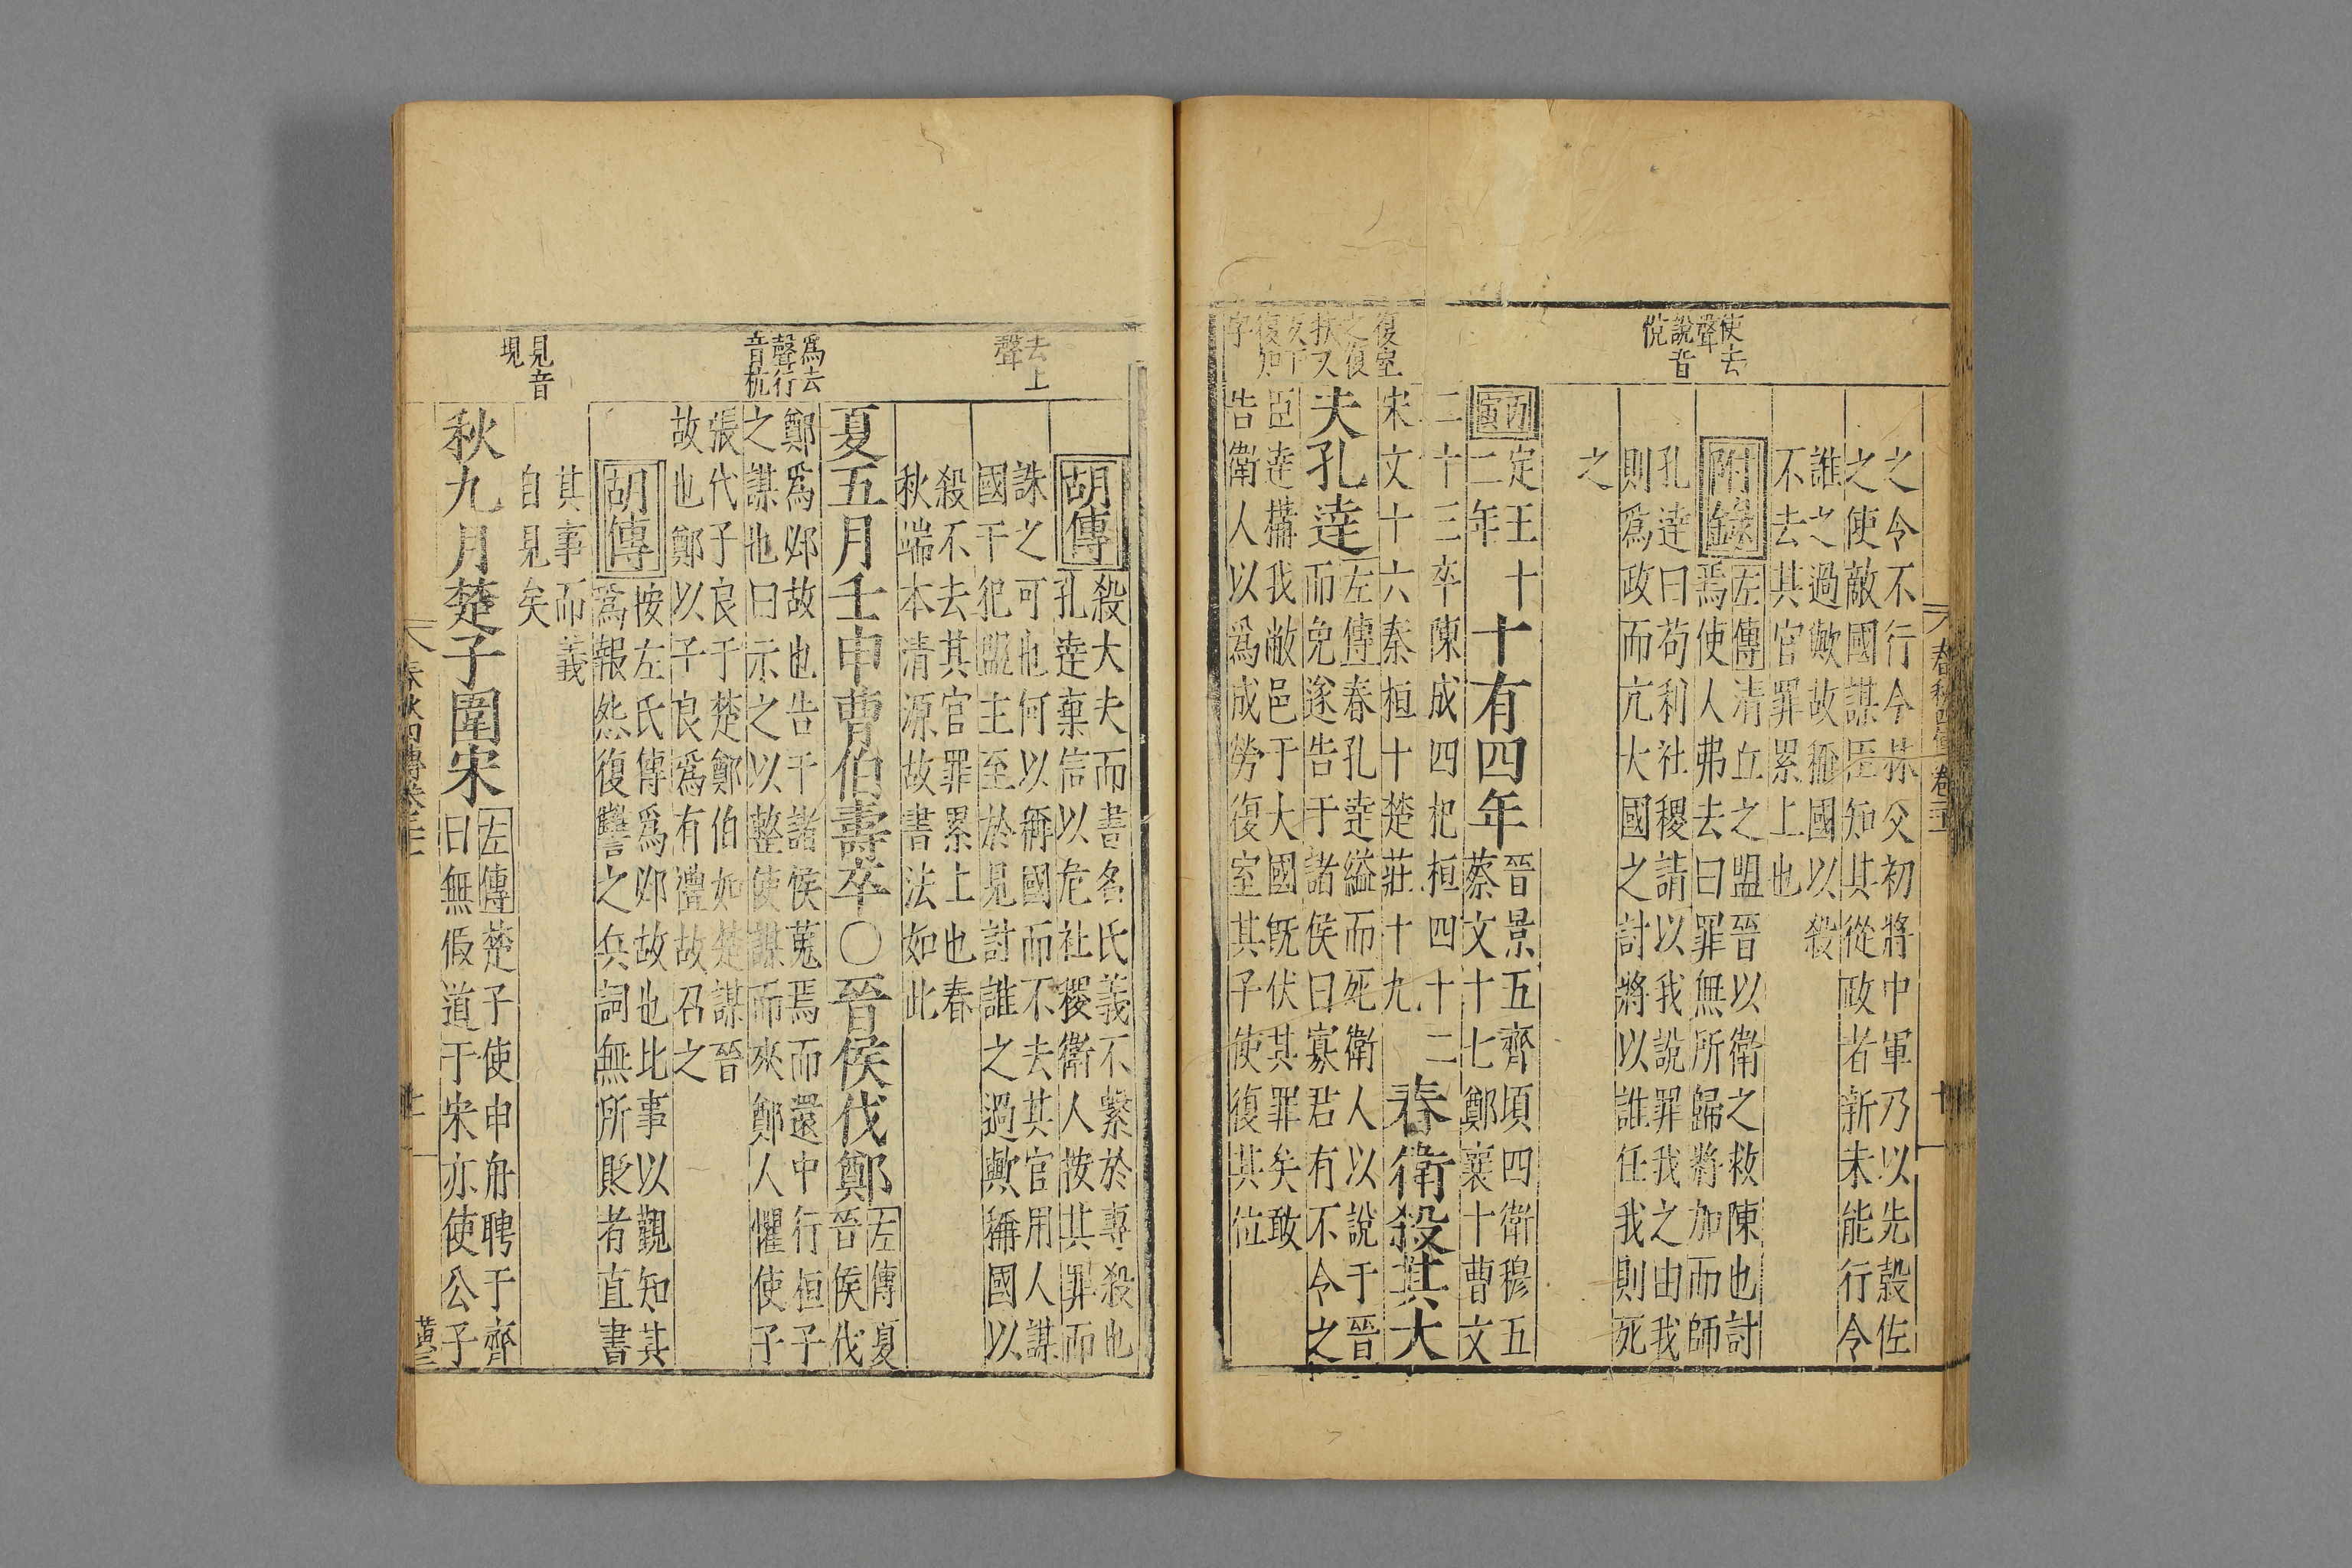 使去
聲
說音
悅
復室
之復
扶又
反下
復如
字
之令不行今林父初將中軍乃以先縠佐
之使敵國謀臣知其從政者新未能行令
誰之過歟故稱國以殺
不去其官罪累上也
附錄左傳清丘之盟晉以衛之救陳也討
焉使人弗去曰罪無所歸將加而師
孔達曰苟利社稷請以我說罪我之由我
則為政而亢大國之討將以誰任我則死
之
丙寅
定王十
二年
十有四年
晉景五齊頃四衛穆五
蔡文十七鄭襄十曹文
二十三卒陳成四杞桓四十二
宋文十六秦桓十楚莊十九
春衛殺其大
夫孔達
左傳春孔達縊而死衛人以說于晉
而免遂告于諸侯曰寡君有不令之
臣達搆我敝邑于大國既伏其罪矣敢
告衛人以為成勞復室其子使復其位
春秋四傳 卷二十
去上
聲
為去
聲行
音杭
見音
現
胡傳
殺大夫而書名氏義不繫於專殺也
孔達棄信以危社稷衛人按其罪而
誅之可也何以稱國而不去其官用人謀
國干犯盟主至於見討誰之過歟稱國以
殺不去其官罪累上也春
秋端本清源故書法如此
夏五月壬申曹伯壽卒〇晉侯伐鄭
左傳夏
晉侯伐
鄭為邲故也告于諸侯蒐焉而還中行桓子
之謀也曰示之以整使謀而來鄭人懼使子
張代子良于楚鄭伯如楚謀晉
故也鄭以子良為有禮故召之
胡傳
按左氏傳為邲故也比事以觀知其
為報怨復讐之兵詞無所貶者直書
其事而義
自見矣
秋九月楚子圍宋
左傳楚子使申舟聘于齊
曰無假道于宋亦使公子
春秋四傳卷二十